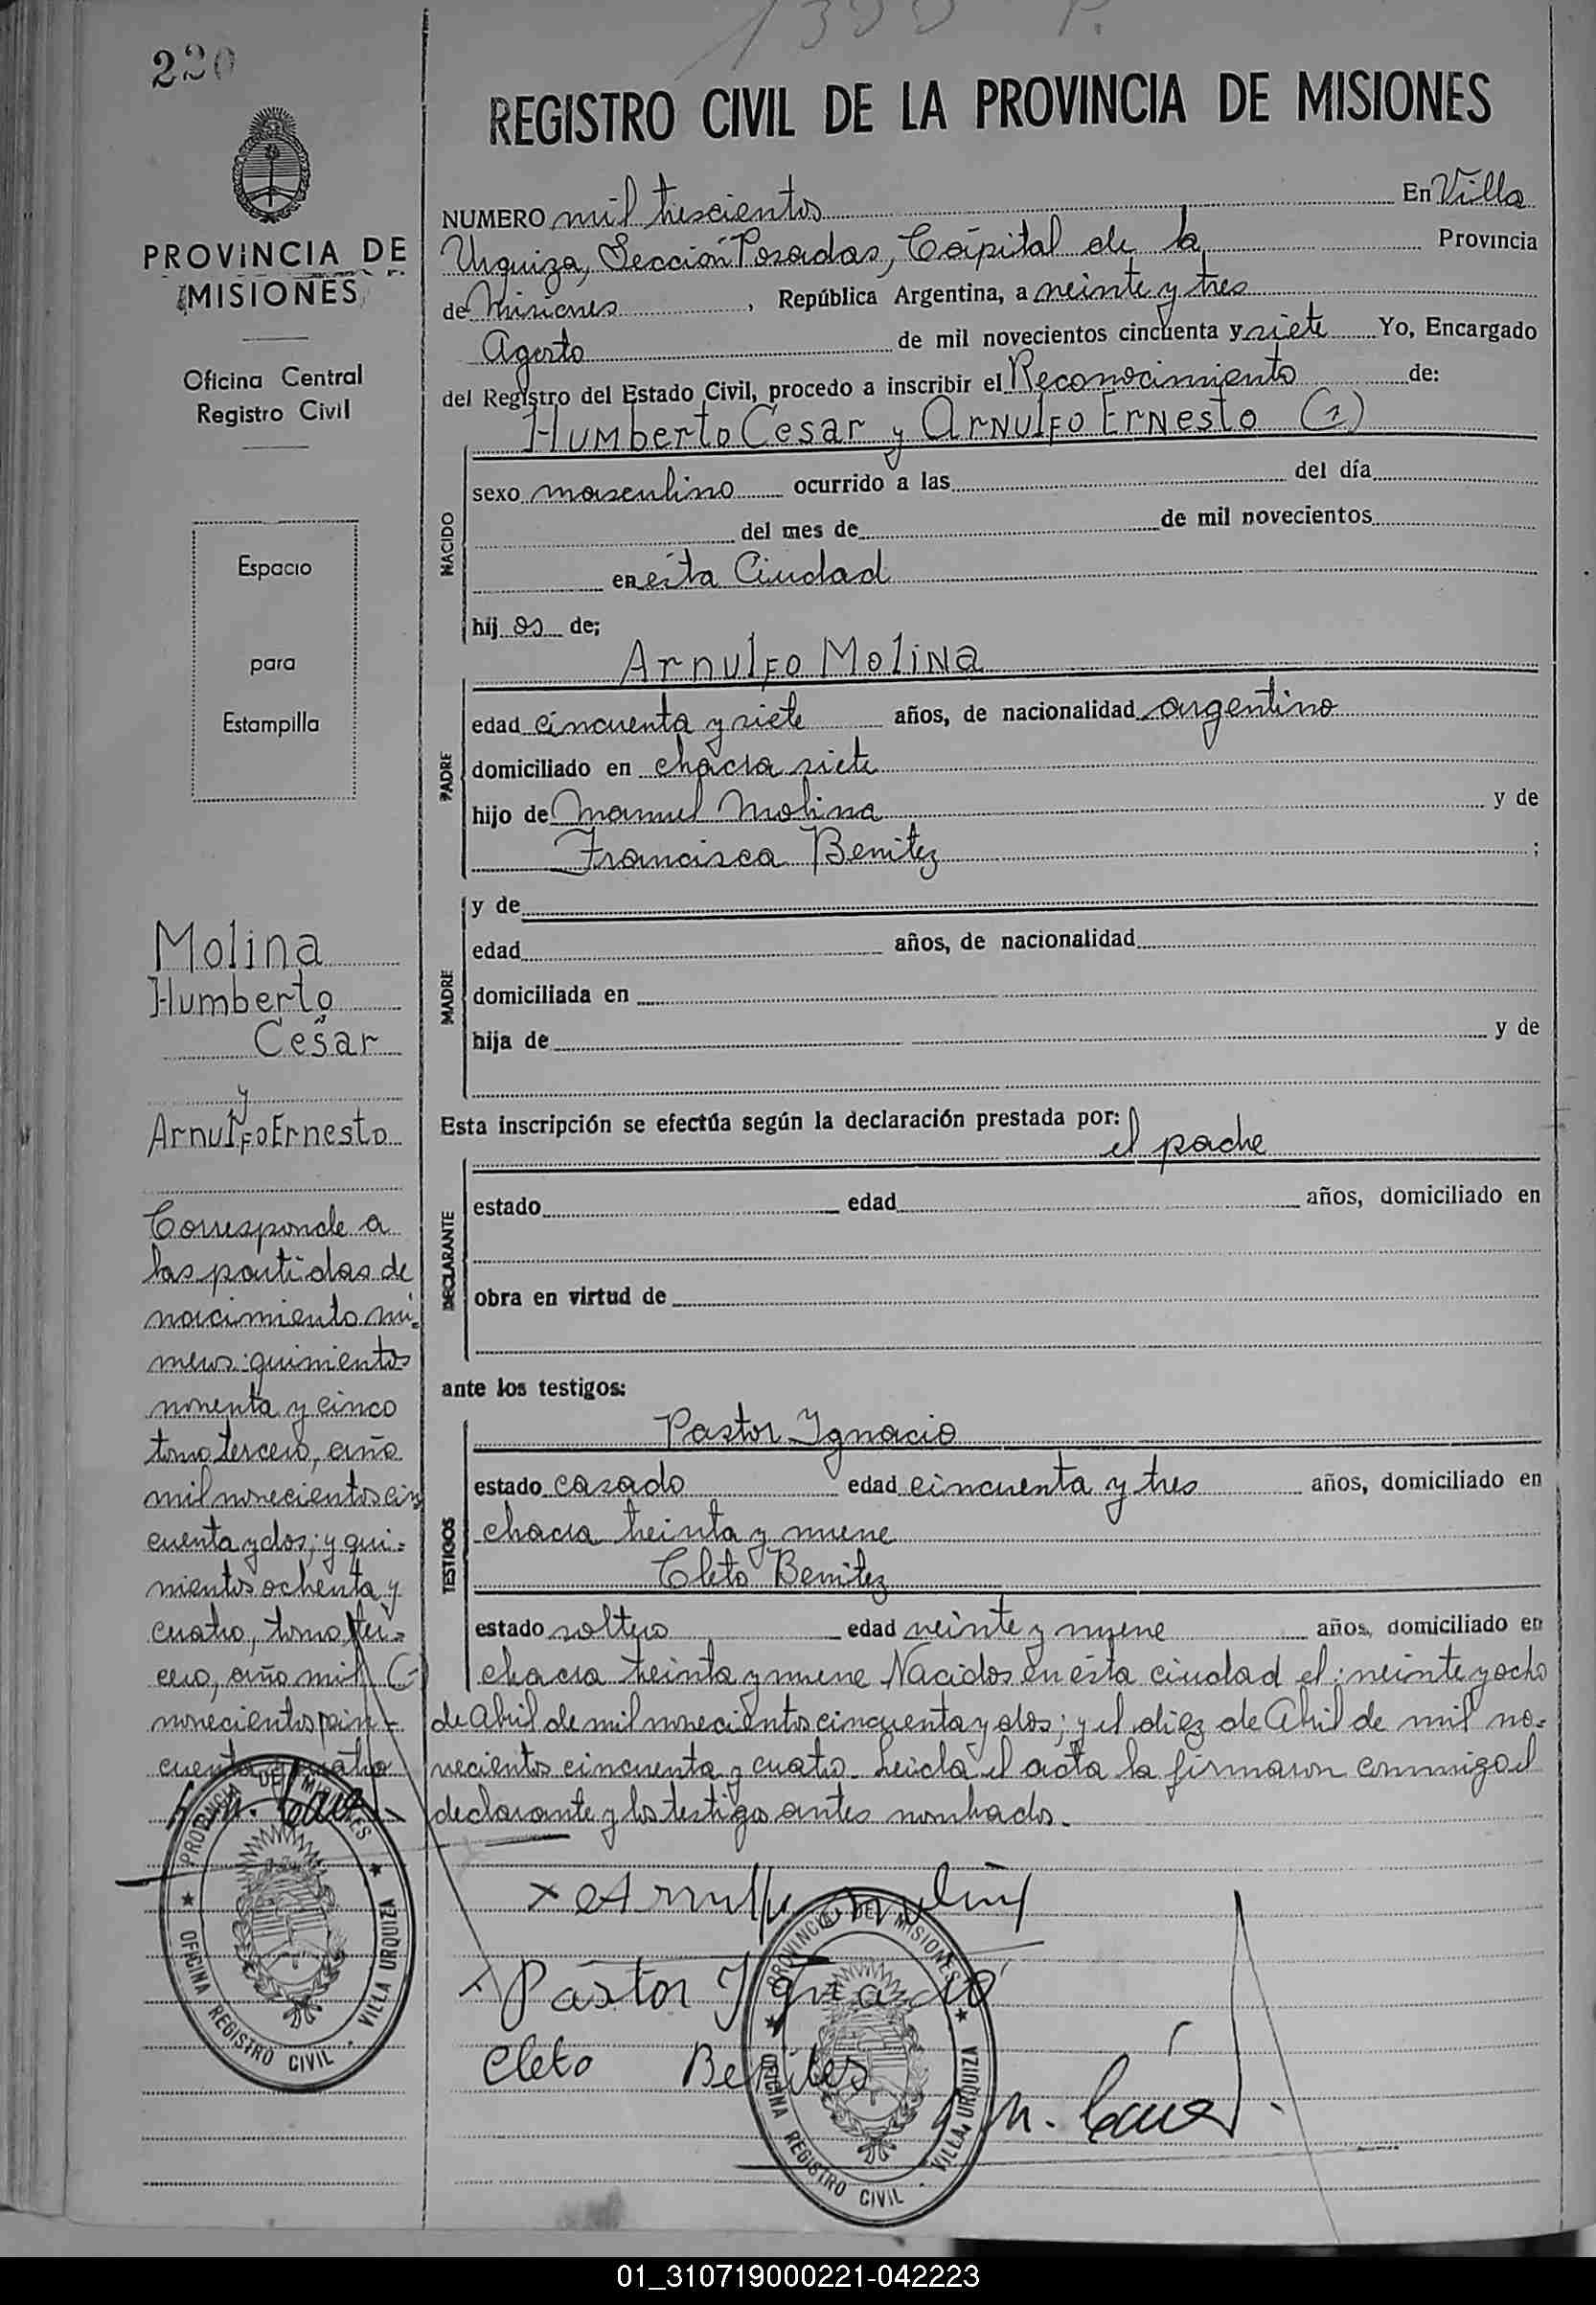 1300 P.
220
PROVINCIA DE
MISIONES
Oficina Central
Registro Civil
Espacio
para
Estampilla
Molina
Humberto
Cesar
y
Arnulfo Ernesto
Corresponde a
las partidas de
nacimiento nú-
meros: quinientos
noventa y cinco
tomo tercero, año
mil novecientos cin
cuenta y dos; y qui-
nientos ochenta y
cuatro, tomo ter-
cero, año mil
novecientos cin-
cuenta y cuatro
PROVINCIA DE MISIONES
OFICINA REGISTRO CIVIL · VILLA URQUIZA
REGISTRO CIVIL DE LA PROVINCIA DE MISIONES
NUMERO mil trescientos En Villa
Urquiza, Sección Posadas, Cápital de la Provincia
de Misiones, República Argentina, a veinte y tres
Agosto de mil novecientos cincuenta y siete Yo, Encargado
del Registro del Estado Civil, procedo a inscribir el Reconocimiento de:
Humberto Cesar y Arnulfo Ernesto (1)
NACIDO
sexo masculino ocurrido a las del día
del mes de de mil novecientos
en esta Ciudad
hij os de;
Arnulfo Molina
PADRE
edad cincuenta y siete años, de nacionalidad argentino
domiciliado en chacra siete
hijo de Manuel Molina y de
Francisca Benitez ;
MADRE
y de
edad años, de nacionalidad
domiciliada en
hija de y de
Esta inscripción se efectúa según la declaración prestada por:
el padre
DECLARANTE
estado edad años, domiciliado en
obra en virtud de
ante los testigos:
TESTIGOS
Pastor Ygnacio
estado casado edad cincuenta y tres años, domiciliado en
chacra treinta y nueve
Cleto Benitez
estado soltero edad veinte y nueve años, domiciliado en
chacra treinta y nueve Nacidos en esta ciudad el: veinte y ocho
de Abril de mil novecientos cincuenta y dos; y el diez de Abril de mil no-
vecientos cincuenta y cuatro. Leida el acta la firmaron conmigo el
declarante y los testigos antes nombrados.
x Arnulfo Molina
x Pastor Ygnacio
Cleto Benites
PROVINCIA DE MISIONES
OFICINA REGISTRO CIVIL · VILLA URQUIZA
01_310719000221-042223